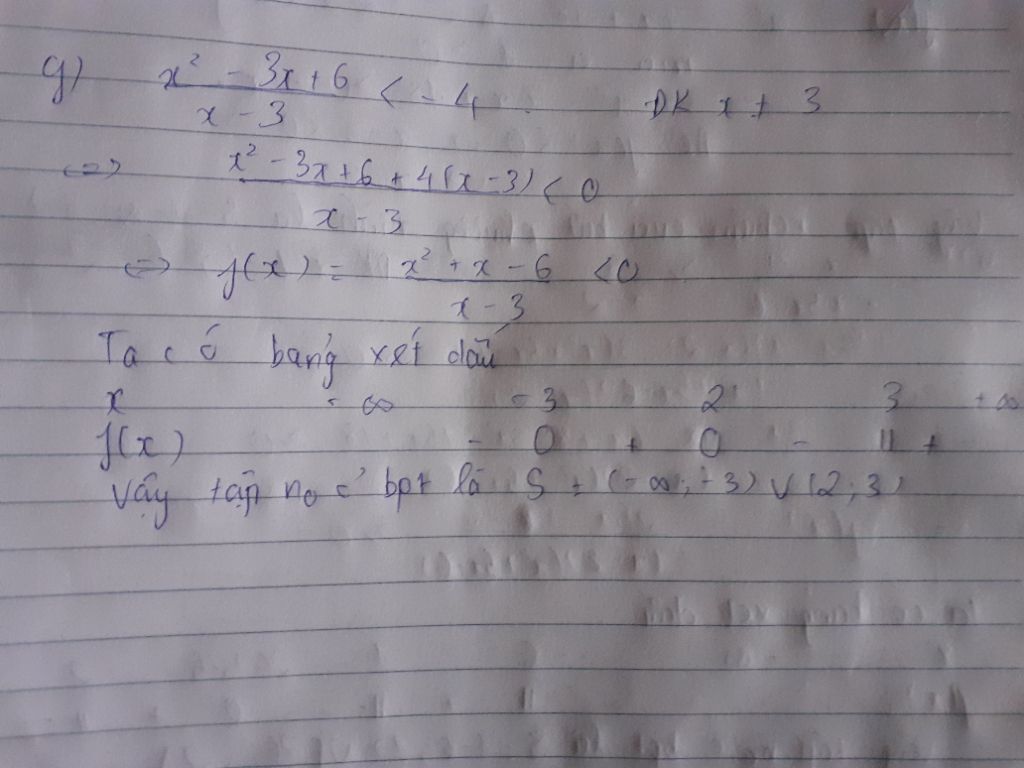 g) x² - 3x + 6 / x - 3 < - 4 ĐK x ≠ 3
<=> x² - 3x + 6 + 4(x - 3) / x - 3 < 0
<=> f(x) = x² + x - 6 / x - 3 < 0
Ta có bảng xét dấu
x - ∞ - 3 2 3 + ∞
f(x) - 0 + 0 - || +
Vậy tập no c̉ bpt là S = (- ∞; - 3) ∪ (2; 3)